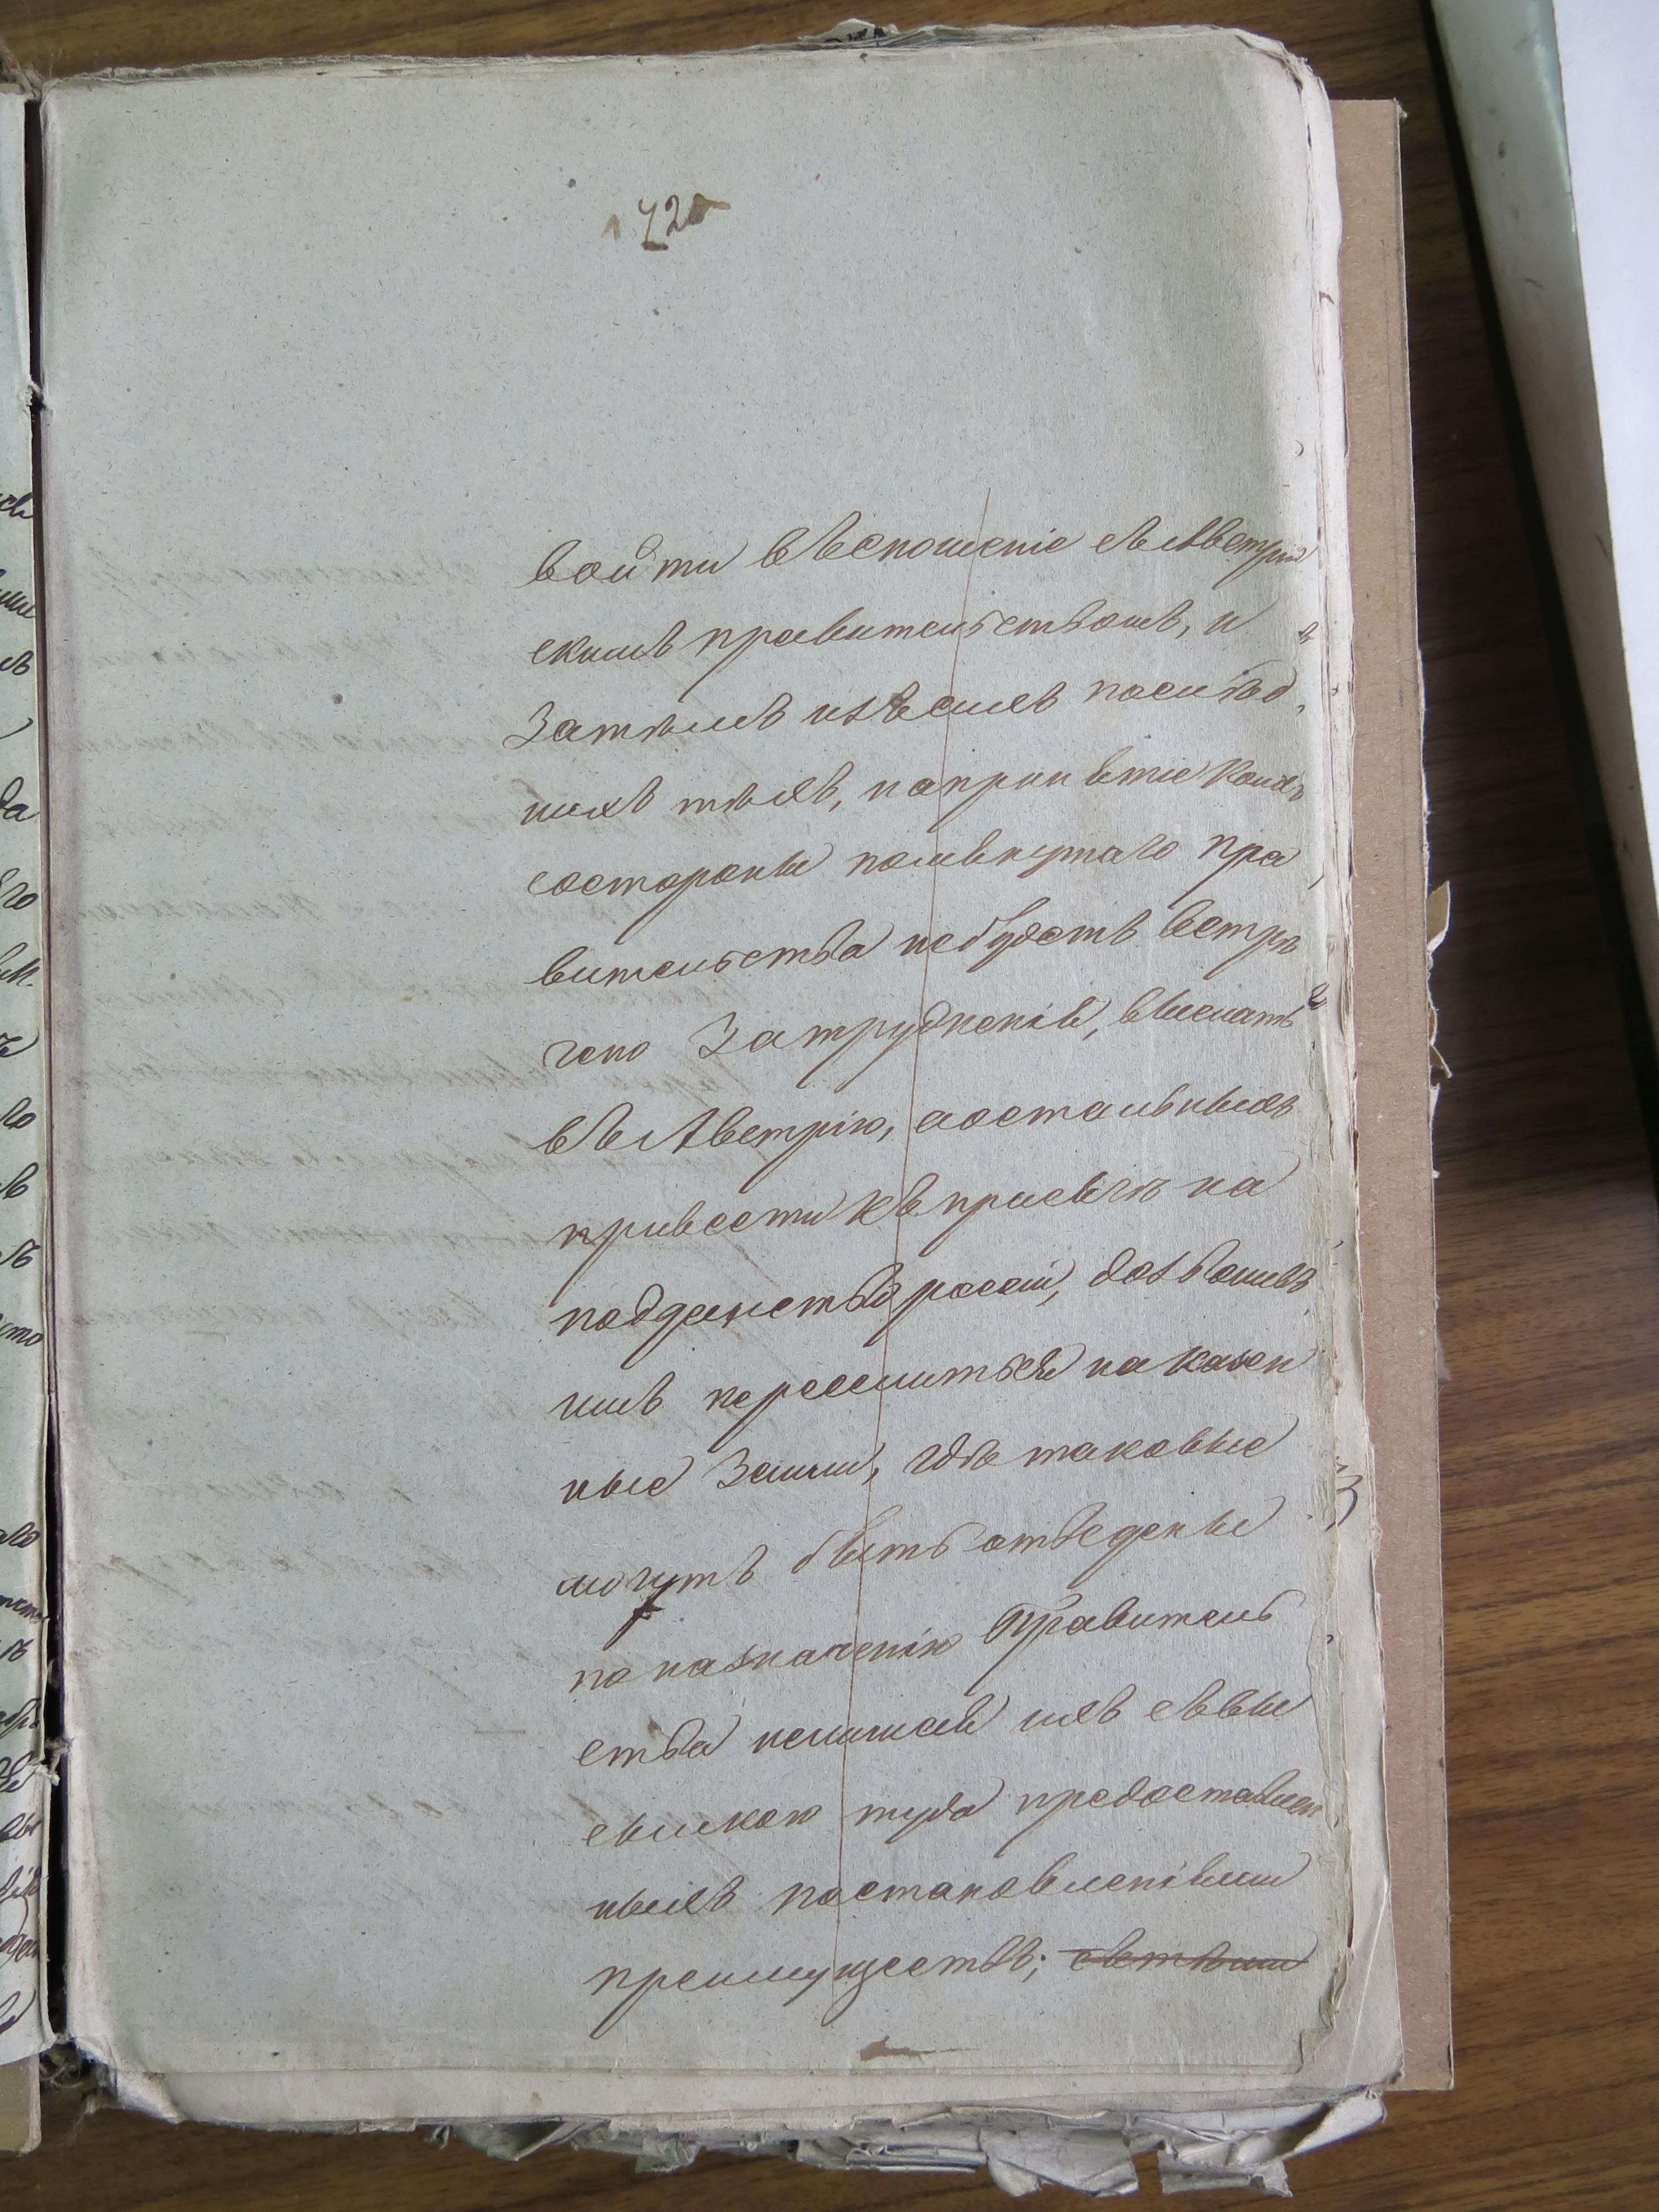 172
войти въ сношеніе съ Австрій
скимъ правительствомъ, и
затѣмъ изъ сихъ послѣд
нихъ тѣхъ, на принятіе коихъ
со стороны помянутаго пра
вительства не будетъ встрѣ
чено затрудненія, выслать
въ Австрію, а остальныхъ
привести къ присягѣ на
подданство россіи, дозволивъ
имъ переселиться на казен
ные земли, гдѣ таковые
могутъ быть отведены
по назначенію Правитель
ства нелишая ихъ съ вы
сылкою туда предоставлен
ныхъ постановленіями
преимуществъ;